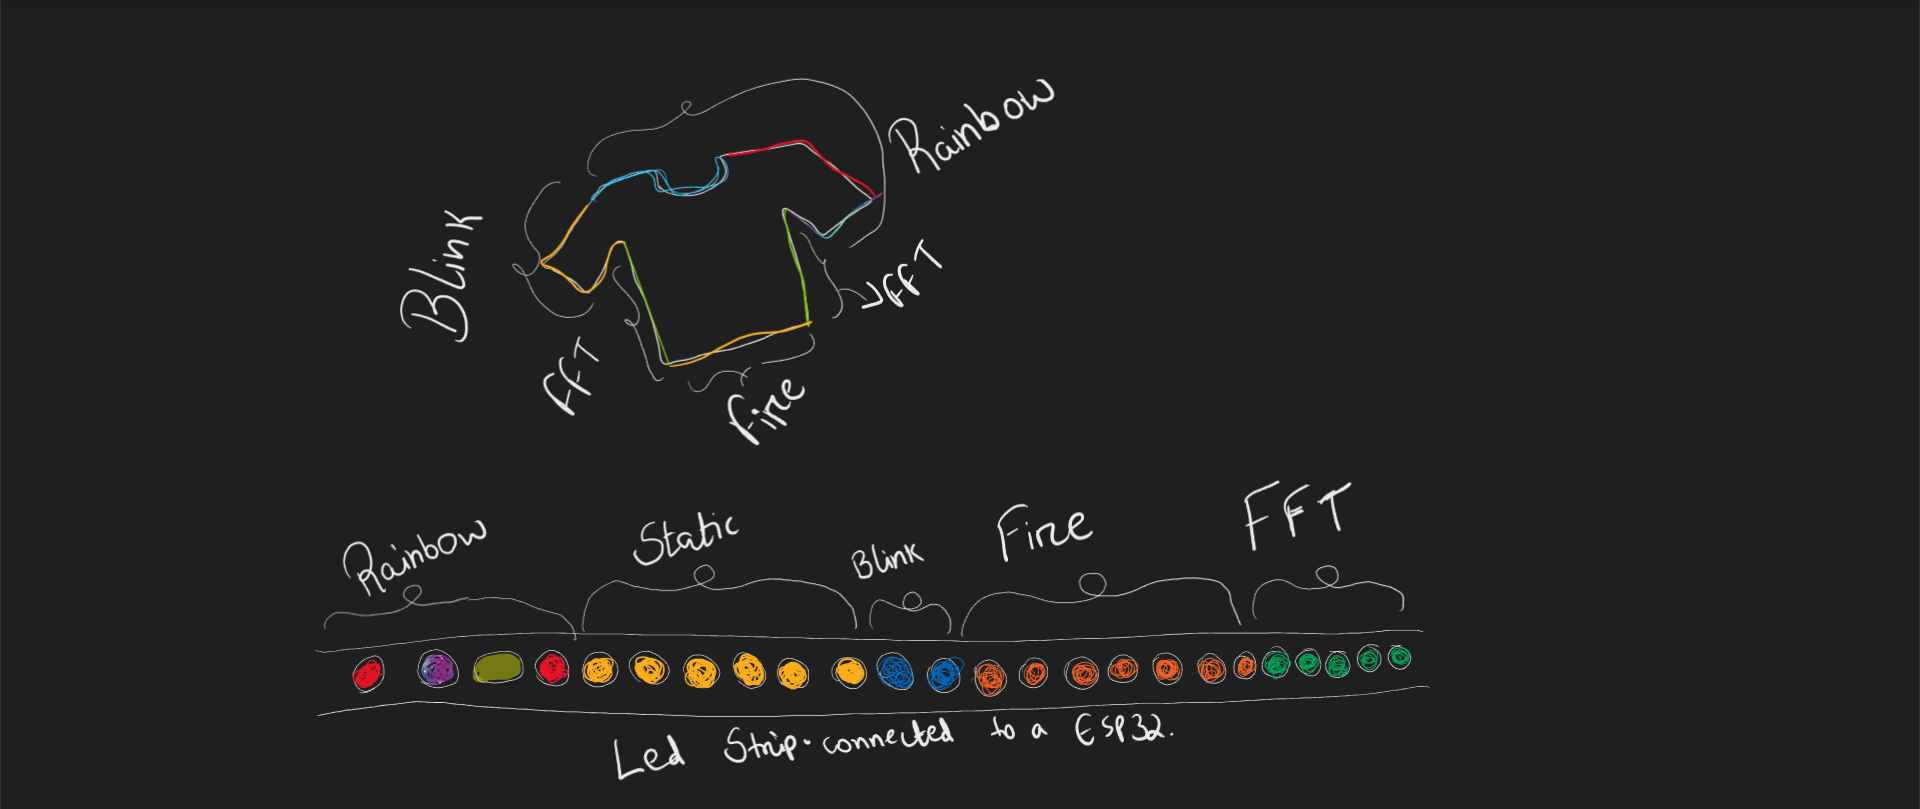 Rainbow
Blink
FFT
FFT
Fire
Rainbow
Static
Blink
Fire
FFT
Led Strip. connected to a ESP32.